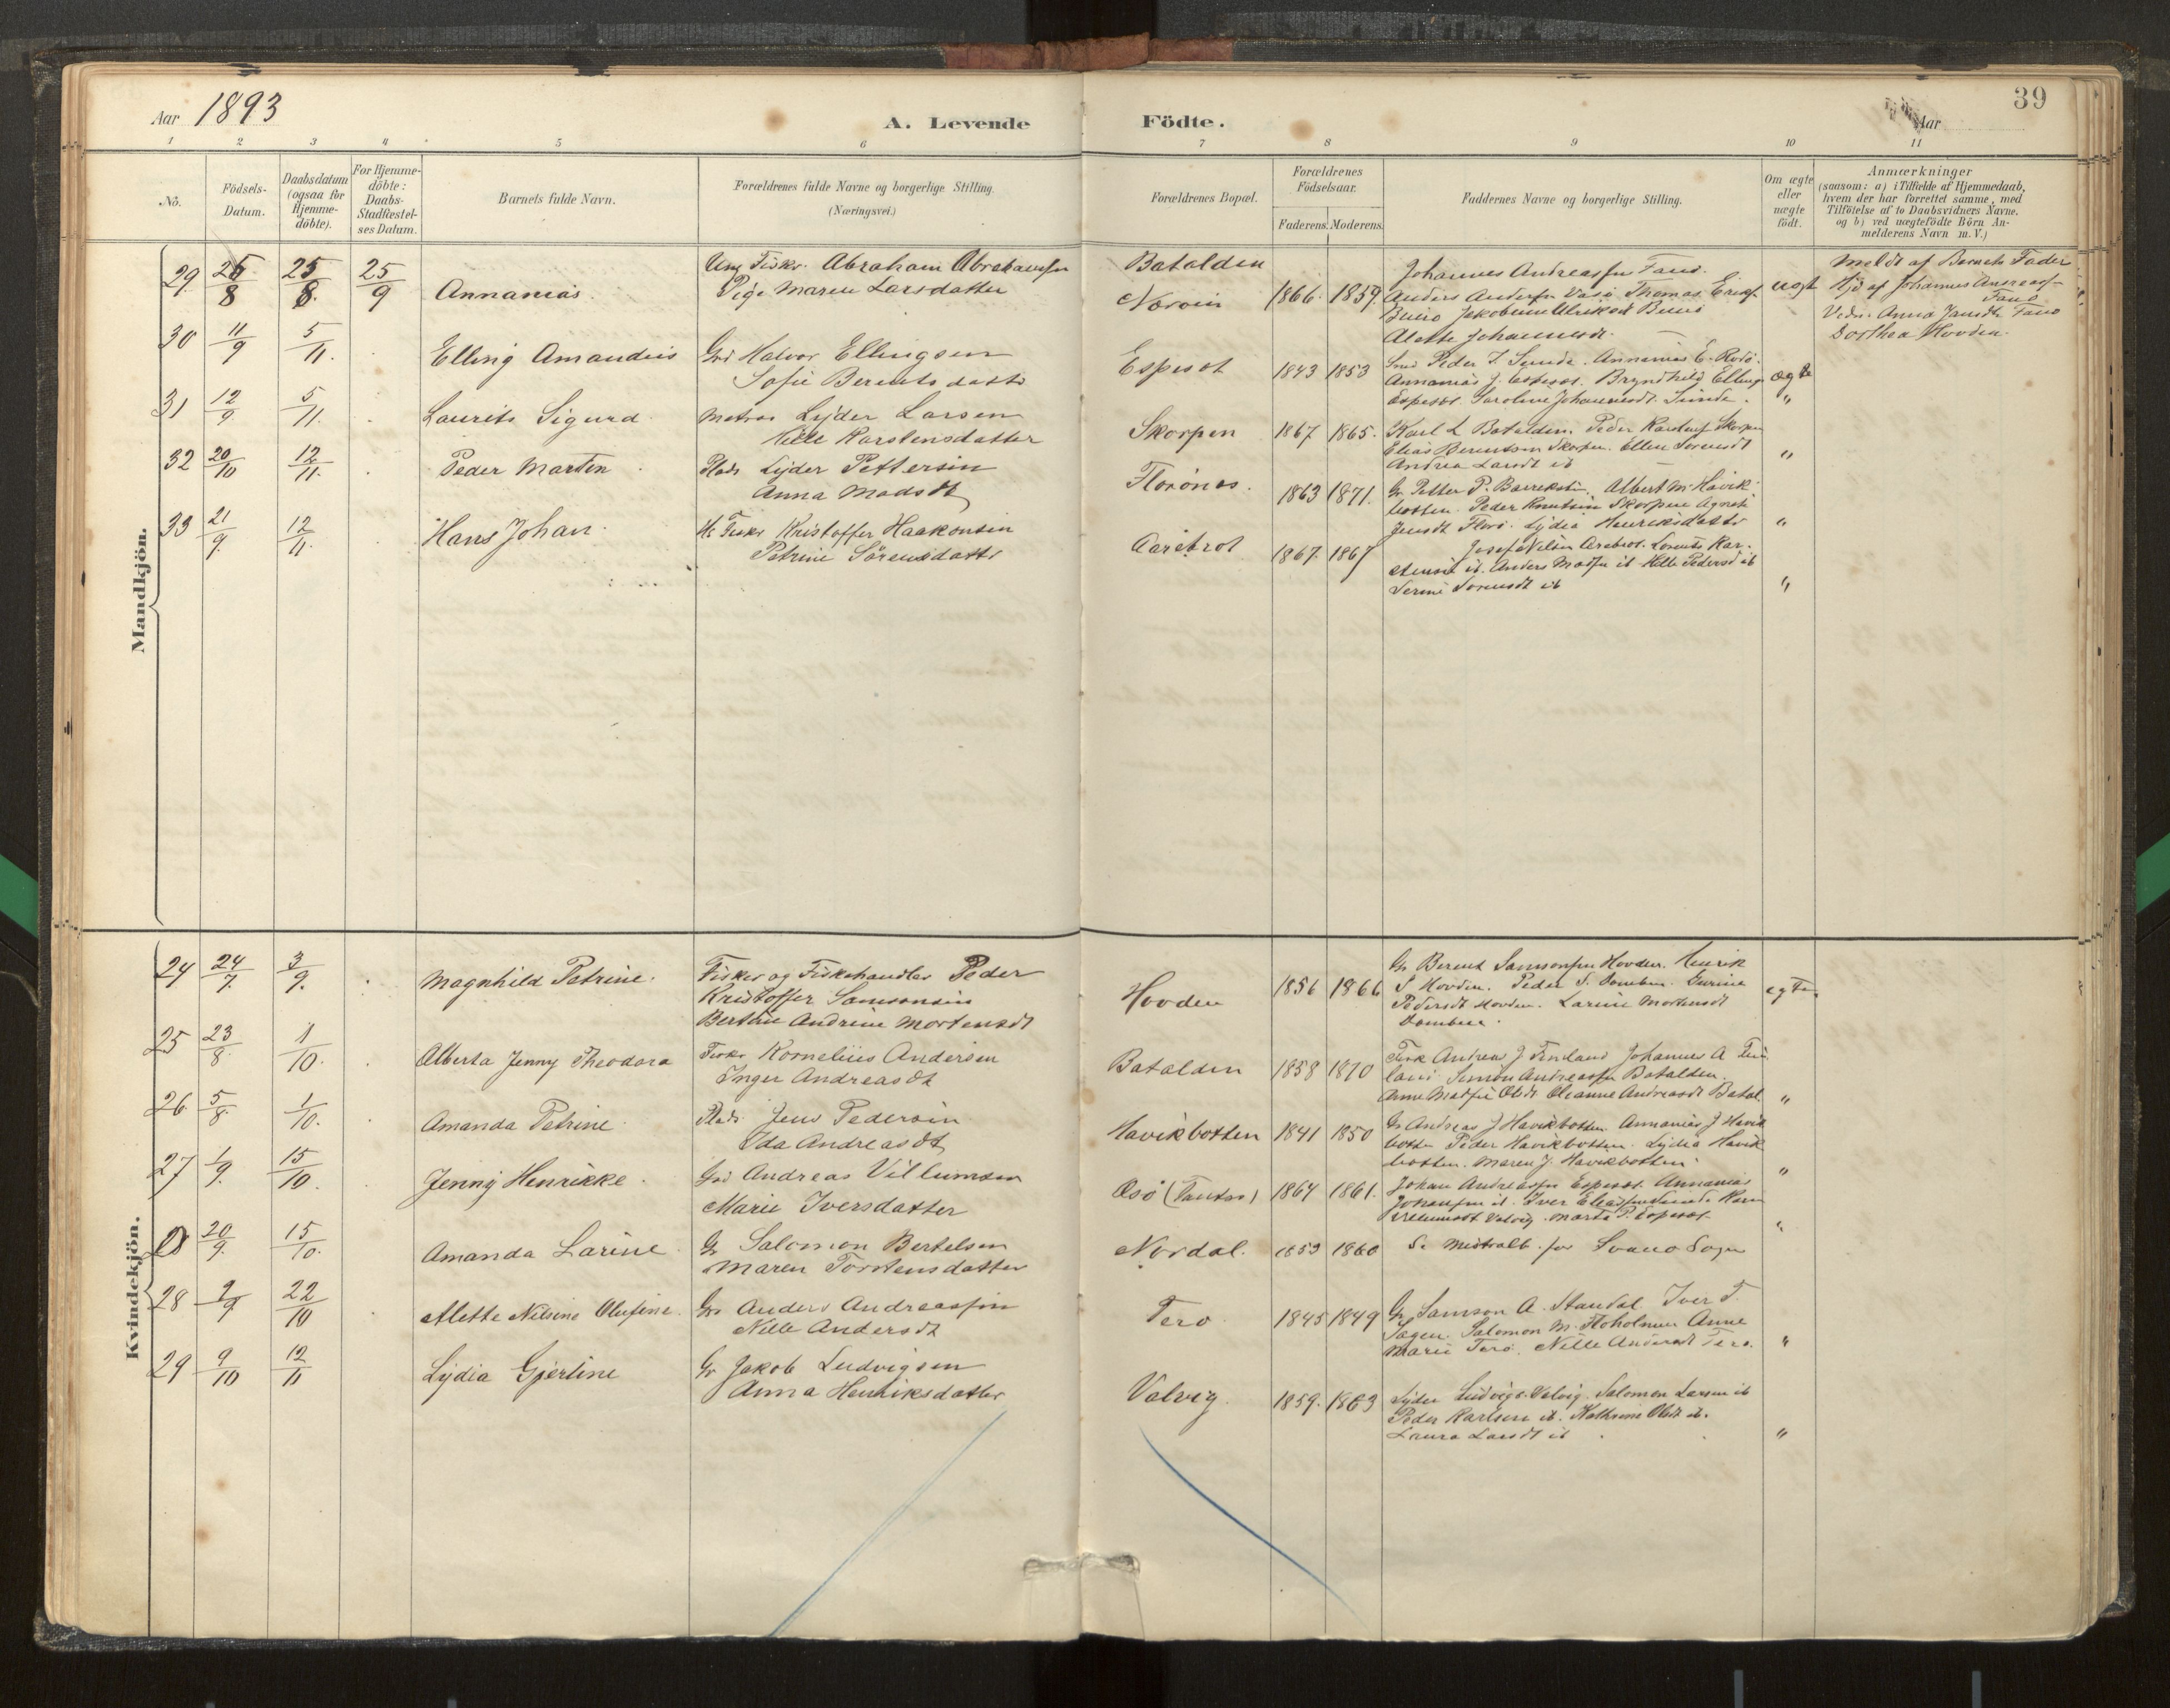 Aar 1893
A. Levende Födte.
Aar
39
1 2 3 4 5 6 7 8 9 10 11
No.
Födsels-Datum.
Daabsdatum (ogsaa for Hjemme-döbte).
For Hjemme-döbte: Daabs-Stadfæstel-ses Datum.
Barnets fulde Navn.
Forældrenes fulde Navne og borgerlige Stilling.
(Næringsvei.)
Forældrenes Bopæl.
Forældrenes Födselsaar.
Faderens. Moderens.
Faddernes Navne og borgerlige Stilling.
Om ægte eller uægte födt.
Anmærkninger
(saasom: a) i Tilfælde af Hjemmedaab,
hvem der har forrettet samme, med
Tilföielse af to Daabsvidners Navne,
og b) ved uægtefödte Börn An-
melderens Navn m. V.)
Mandkjön.
29. 25/8 25/8. 25/9 Annanias.
Ung Fisker. Abraham Abrahamsen
Pige Maren Larsdatter
Batalden
Norvin 1866. 1859.
Johannes Andreassen Fanö.
Anders Andersen Vasö Thomas Eriks
Alette Johannesdt.
uægt
Meldt af Barnets Fader
Hjd af Johannes Andreass
Fanö
Vidn. Anna Jansdt Fanö
Dorthea Hovden.
30 11/9 5/11. Elling Amandus
Grd Halvor Ellingsen
Sofie Berentsdattr
Espeset 1843 1853
Grd Peder J. Sunde. Annanias E. Rodö.
Annanias J. Espeset. Bryndhild Ellings
Espeset. Saroline Johannesdt. Sunde.
ægte
"
31 12/9. 5/11. Laurits Sigurd.
Matros Lyder Larsen
Nille Karstensdatter
Skorpen 1867 1865.
Karl L Batalden. Peder Karlens Skorpen
Elias Berentsen Skorpen. Ellen Sorensdt
Andrea Larsdt ib
"
32 20/10 12/11. Peder Martin
Plads Lyder Pettersen
Anna Madsdt
Florönes. 1863 1871.
Gr Petter P. Barrekstn. Albert M. Havik
botten. Peder Knutsen Skorpen Agneti
Jensdt Florö. Lydia Henriksdattr
"
33 21/9. 12/11. Hans Johan.
Hs Fisker Kristoffer Haakonsen
Petrine Sörensdattr
Aarebrot 1867 1867
Josef Nilsen Arebrot. Lorents Kar-
stensen ib. Anders Madsen ib Nille Pedersd ib
Serine Sorensdt ib
"
Kvindekjön.
24 24/7. 3/9. Magnhild Petrine.
Fisker og Fiskehandler Peder
Kristoffer Samsonsen
Bertine Andrine Mortensdt
Hovden 1856 1866
Gr Berent Samsonsen Hovden. Henrik
S Hovden. Peder S. Domben. Gurine
Pedersdt Hovden. Larine Mortensdt
Domben.
egte.
25 23/8. 1/10. Alberta Jenny Theodora
Fisker Kornelius Andersen
Inger Andreasdt
Batalden 1858 1870
Fisk Andreas J Fimland Johannes A Fim
land. Simon Andreassen Batalden.
Anne Madsie Olsdt Oleanne Andreasdt Batal
"
26 5/8. 1/10. Amanda Petrine.
Plads. Jens Pedersen
Ida Andreasdt
Havikbotten 1841 1850
Gr Andreas J Havikbotten Annanias J Havik
botten Peder Havikbotten. Lydia Havik
botten. Maren J. Havikbotten.
"
27 1/9. 15/10. Jenny Henrikke.
Grd Andreas Villumsen
Marie Iversdatter
Osö (Tansö) 1864 1861.
Johan Andreassen Espeset Annanias
Johansen ib. Iver Eliassen Sunde Karn
Villumsdt Valvig. Marta P. Espeset
"
D 20/9. 15/10. Amanda Larine.
Gr Salomon Bertelsen
Maren Torstensdatter
Nordal. 1853 1860
Se Mistralb. for Svanö Sogn
28 2/9 22/10 Alette Nilsine Olufine.
Grd Anders Andreassen
Nille Andersdt
Terö 1845 1849
Gr Samson A. Standal. Iver T.
Sagen. Salomon M. Floholmen Anne
Marie Terö. Nille Andersdt Terö.
"
29 9/10 12/11 Lydia Gjertine
Gr Jakob Ludvigsen
Anna Henriksdatter
Valvig. 1859. 1863
Lyder Ludvigs. Valvig. Salomon Larsen ib
Peder Karlsen ib. Kathrine Olsdt ib.
Laura Larsdt ib
"